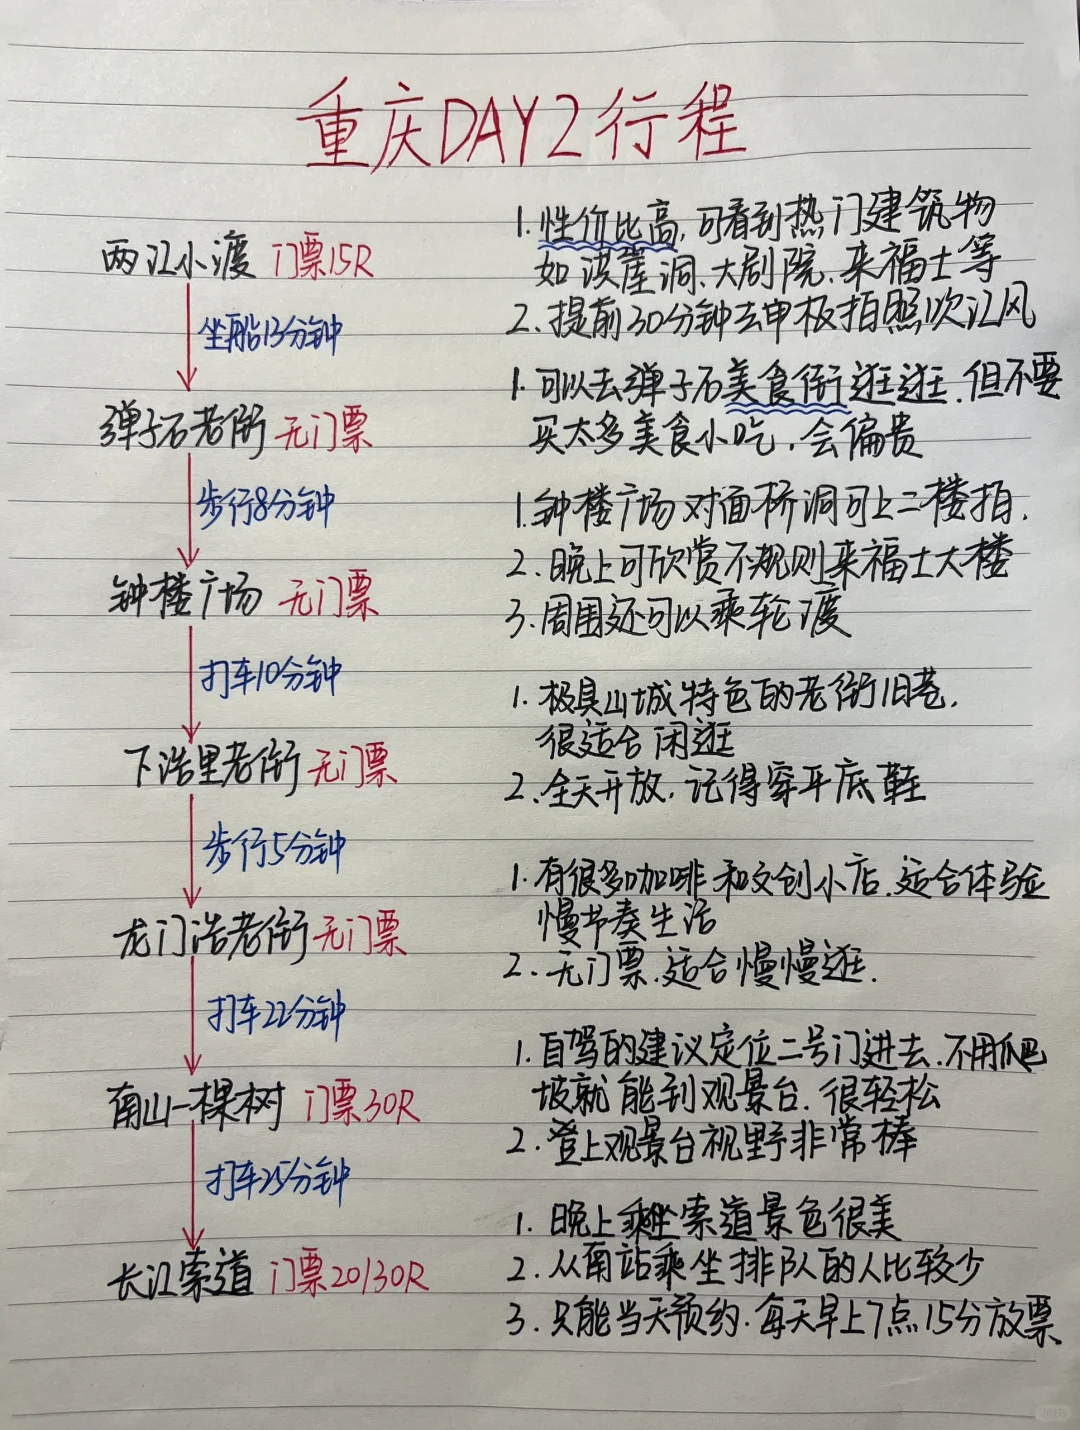 重庆DAY2行程
两江小渡 门票15R
坐船13分钟
弹子石老街 无门票
步行8分钟
钟楼广场 无门票
打车10分钟
下浩里老街 无门票
步行5分钟
龙门浩老街 无门票
打车22分钟
南山一棵树 门票30R
打车25分钟
长江索道 门票20/30R
1.性价比高,可看到热门建筑物
如洪崖洞、大剧院、来福士等
2.提前30分钟去甲板拍照吹江风
1.可以去弹子石美食街逛逛,但不要
买太多美食小吃,会偏贵
1.钟楼广场对面桥洞可上二楼拍.
2.晚上可欣赏不规则来福士大楼
3.周围还可以乘轮渡
1.极具山城特色的老街旧巷,
很适合闲逛
2.全天开放,记得穿平底鞋
1.有很多咖啡和文创小店,适合体验
慢节奏生活
2.无门票,适合慢慢逛.
1.自驾的建议定位二号门进去,不用爬
坡就能到观景台,很轻松
2.登上观景台视野非常棒
1.晚上乘坐索道景色很美
2.从南站乘坐排队的人比较少
3.只能当天预约.每天早上7点15分放票